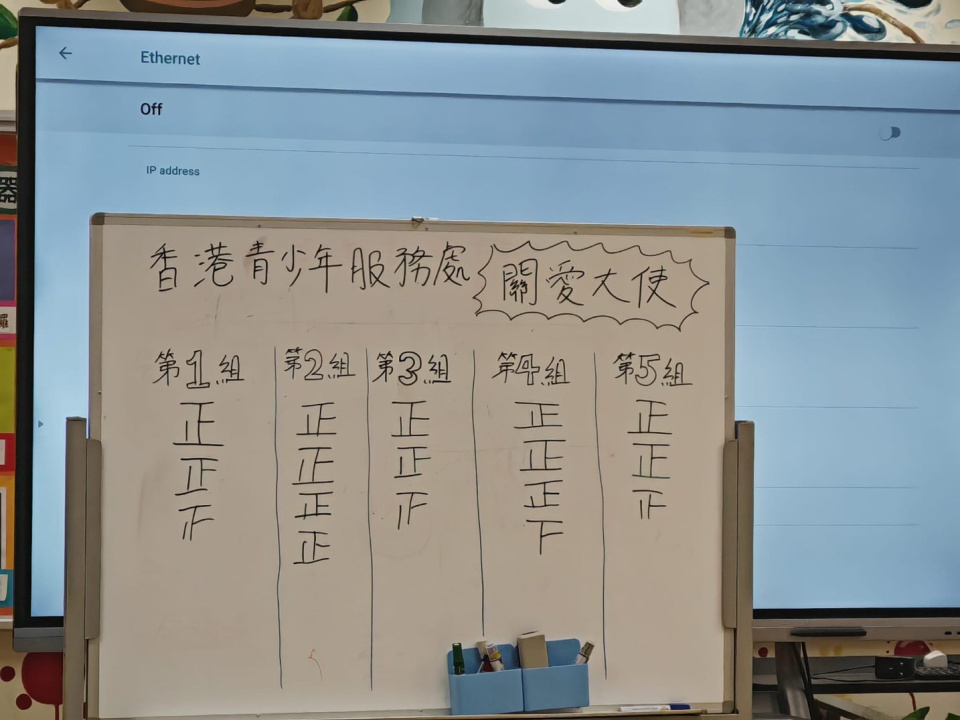 Ethernet
Off
IP address
器
香港青少年服務處 關愛大使
第1組 第2組 第3組 第4組 第5組
正 正 正 正 正
正 正 正 正 正
正 正
正